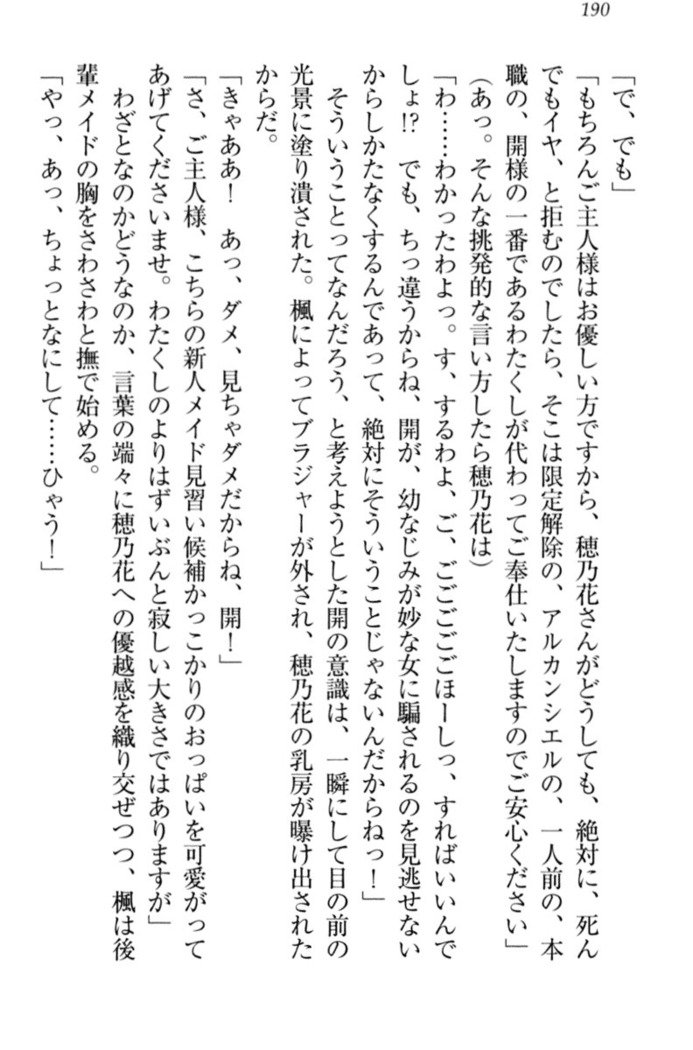 190
「で、でも」
「もちろんご主人様はお優しい方ですから、穂乃花さんがどうしても、絶対に、死ん
でもイヤ、と拒むのでしたら、そこは限定解除の、アルカンシエルの、一人前の、本
職の、開様の一番であるわたくしが代わってご奉仕いたしますのでご安心ください」
（あっ。そんな挑発的な言い方したら穂乃花は）
「わ……わかったわよっ。す、するわよ、ご、ごごごごごほーしっ、すればいいんで
しょ!?　でも、ちっ違うからね、開が、幼なじみが妙な女に騙されるのを見逃せない
からしかたなくするんであって、絶対にそういうことじゃないんだからねっ！」
　そういうことってなんだろう、と考えようとした開の意識は、一瞬にして目の前の
光景に塗り潰された。楓によってブラジャーが外され、穂乃花の乳房が曝け出された
からだ。
「きゃああ！　あっ、ダメ、見ちゃダメだからね、開！」
「さ、ご主人様、こちらの新人メイド見習い候補かっこかりのおっぱいを可愛がって
あげてくださいませ。わたくしのよりはずいぶんと寂しい大きさではありますが」
　わざとなのかどうなのか、言葉の端々に穂乃花への優越感を織り交ぜつつ、楓は後
輩メイドの胸をさわさわと撫で始める。
「やっ、あっ、ちょっとなにして……ひゃう！」